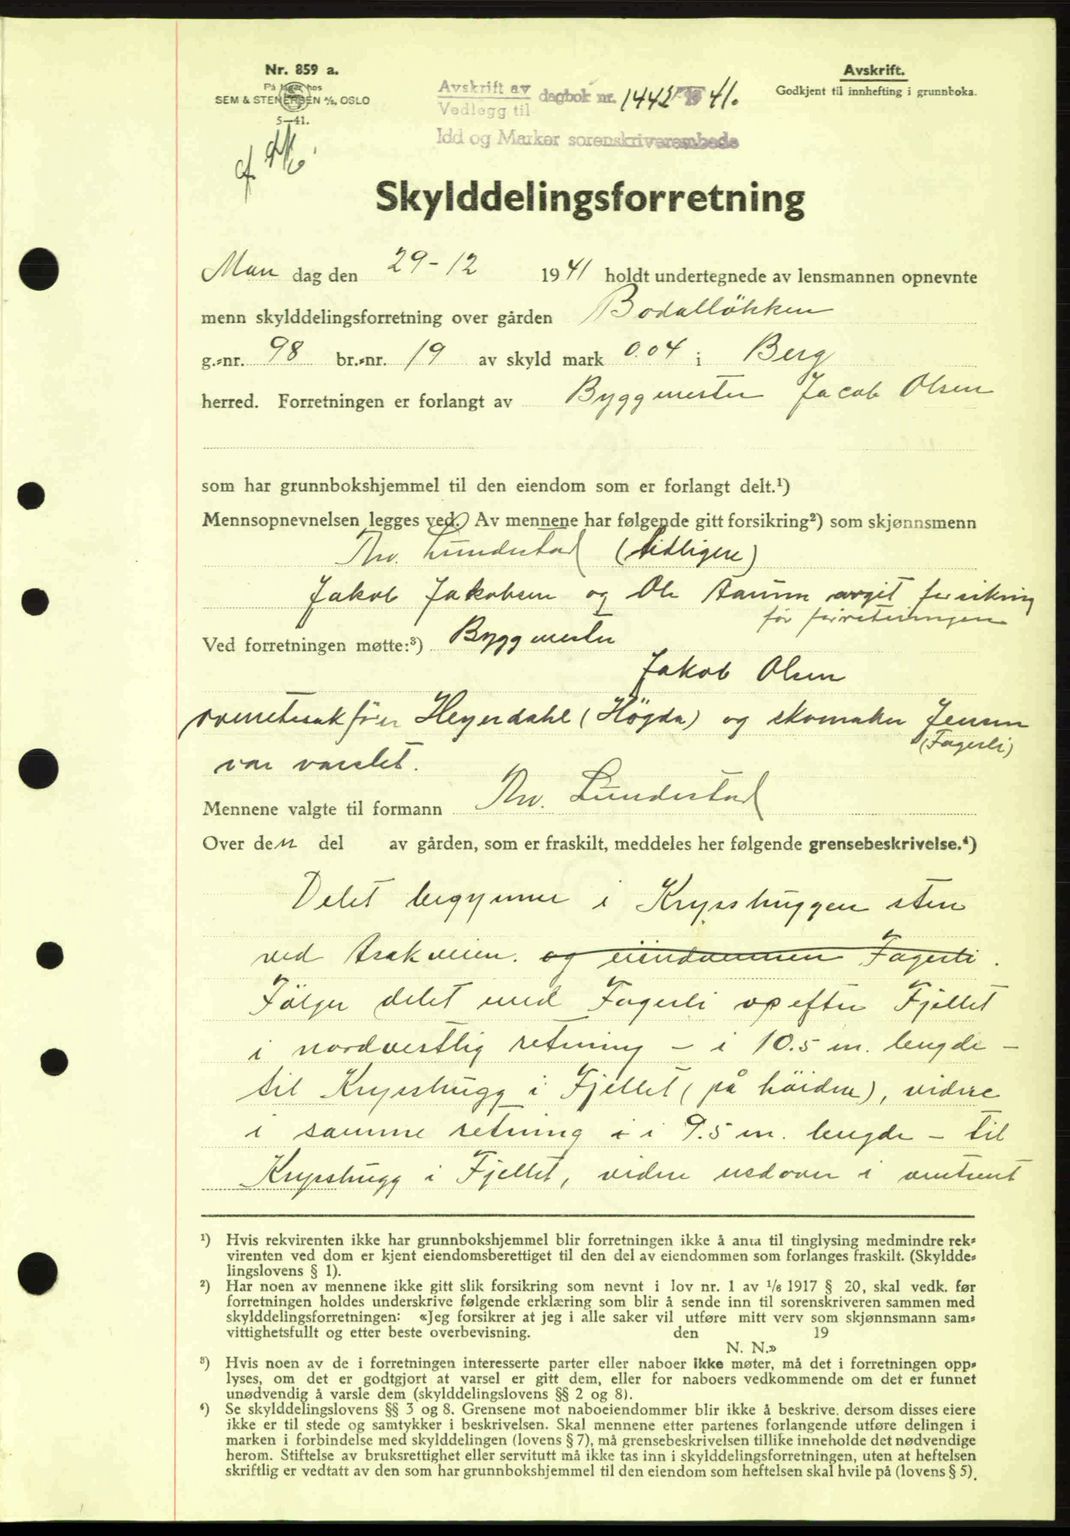 Nr. 859 a.
På lager hos
SEM & STENERSEN A/S, OSLO
5—41.
Avskrift av
Vedlegg til
dagbok nr. 1442/1941.
Idd og Marker sorenskriverembede
Avskrift.
Godkjent til innhefting i grunnboka.
Skylddelingsforretning
Man dag den 29-12 1941 holdt undertegnede av lensmannen opnevnte
menn skylddelingsforretning over gården Bodalløkken
g.-nr. 98 br.-nr. 19 av skyld mark 0.04 i Berg
herred. Forretningen er forlangt av Byggmester Jacob Olsen
som har grunnbokshjemmel til den eiendom som er forlangt delt.¹)
Mennsopnevnelsen legges ved. Av mennene har følgende gitt forsikring²) som skjønnsmenn
Thv. Lundestad (tidligere)
Jakob Jakobsen og Ole Aarum avgit forsikring
før forretningen
Ved forretningen møtte:³) Byggmester
Jakob Olsen
overrettssakfører Heyerdahl (Høgda) og skomaker Jensen
(Fagerli)
var varslet.
Mennene valgte til formann Thv. Lundestad
Over den del av gården, som er fraskilt, meddeles her følgende grensebeskrivelse.⁴)
Delet begynner i Krysshuggen sten
ved Asakveien. og eiendommen Fagerli.
Følger delet med Fagerli op efter Fjellet
i nordvestlig retning – i 10.5 m. lengde –
til Krysshugg i Fjellet (på höiden), videre
i samme retning i 9.5 m. lengde – til
Krysshugg i Fjellet, videre nedover i omtrent
¹) Hvis rekvirenten ikke har grunnbokshjemmel blir forretningen ikke å anta til tinglysing medmindre rek-
virenten ved dom er kjent eiendomsberettiget til den del av eiendommen som forlanges fraskilt. (Skyldde-
lingslovens § 1).
²) Har noen av mennene ikke gitt slik forsikring som nevnt i lov nr. 1 av 1/6 1917 § 20, skal vedk. før
forretningen holdes underskrive følgende erklæring som blir å sende inn til sorenskriveren sammen med
skylddelingsforretningen: «Jeg forsikrer at jeg i alle saker vil utføre mitt verv som skjønnsmann sam-
vittighetsfullt og etter beste overbevisning. den 19
N. N.»
³) Hvis noen av de i forretningen interesserte parter eller naboer ikke møter, må det i forretningen opp-
lyses, om det er godtgjort at varsel er gitt dem, eller for naboers vedkommende om det er funnet
unødvendig å varsle dem (skylddelingslovens §§ 2 og 8).
⁴) Se skylddelingslovens §§ 3 og 8. Grensene mot naboeiendommer blir ikke å beskrive, dersom disses eiere
ikke er til stede og samtykker i beskrivelsen. Skal mennene etter partenes forlangende utføre delingen i
marken i forbindelse med skylddelingen (lovens § 7), må grensebeskrivelsen tillike inneholde det nødvendige
herom. Stiftelse av bruksrettighet eller servitutt må ikke tas inn i skylddelingsforretningen, uten at heftelsen
skriftlig er vedtatt av den som har grunnbokshjemmel til den eiendom som heftelsen skal hvile på (lovens § 5).